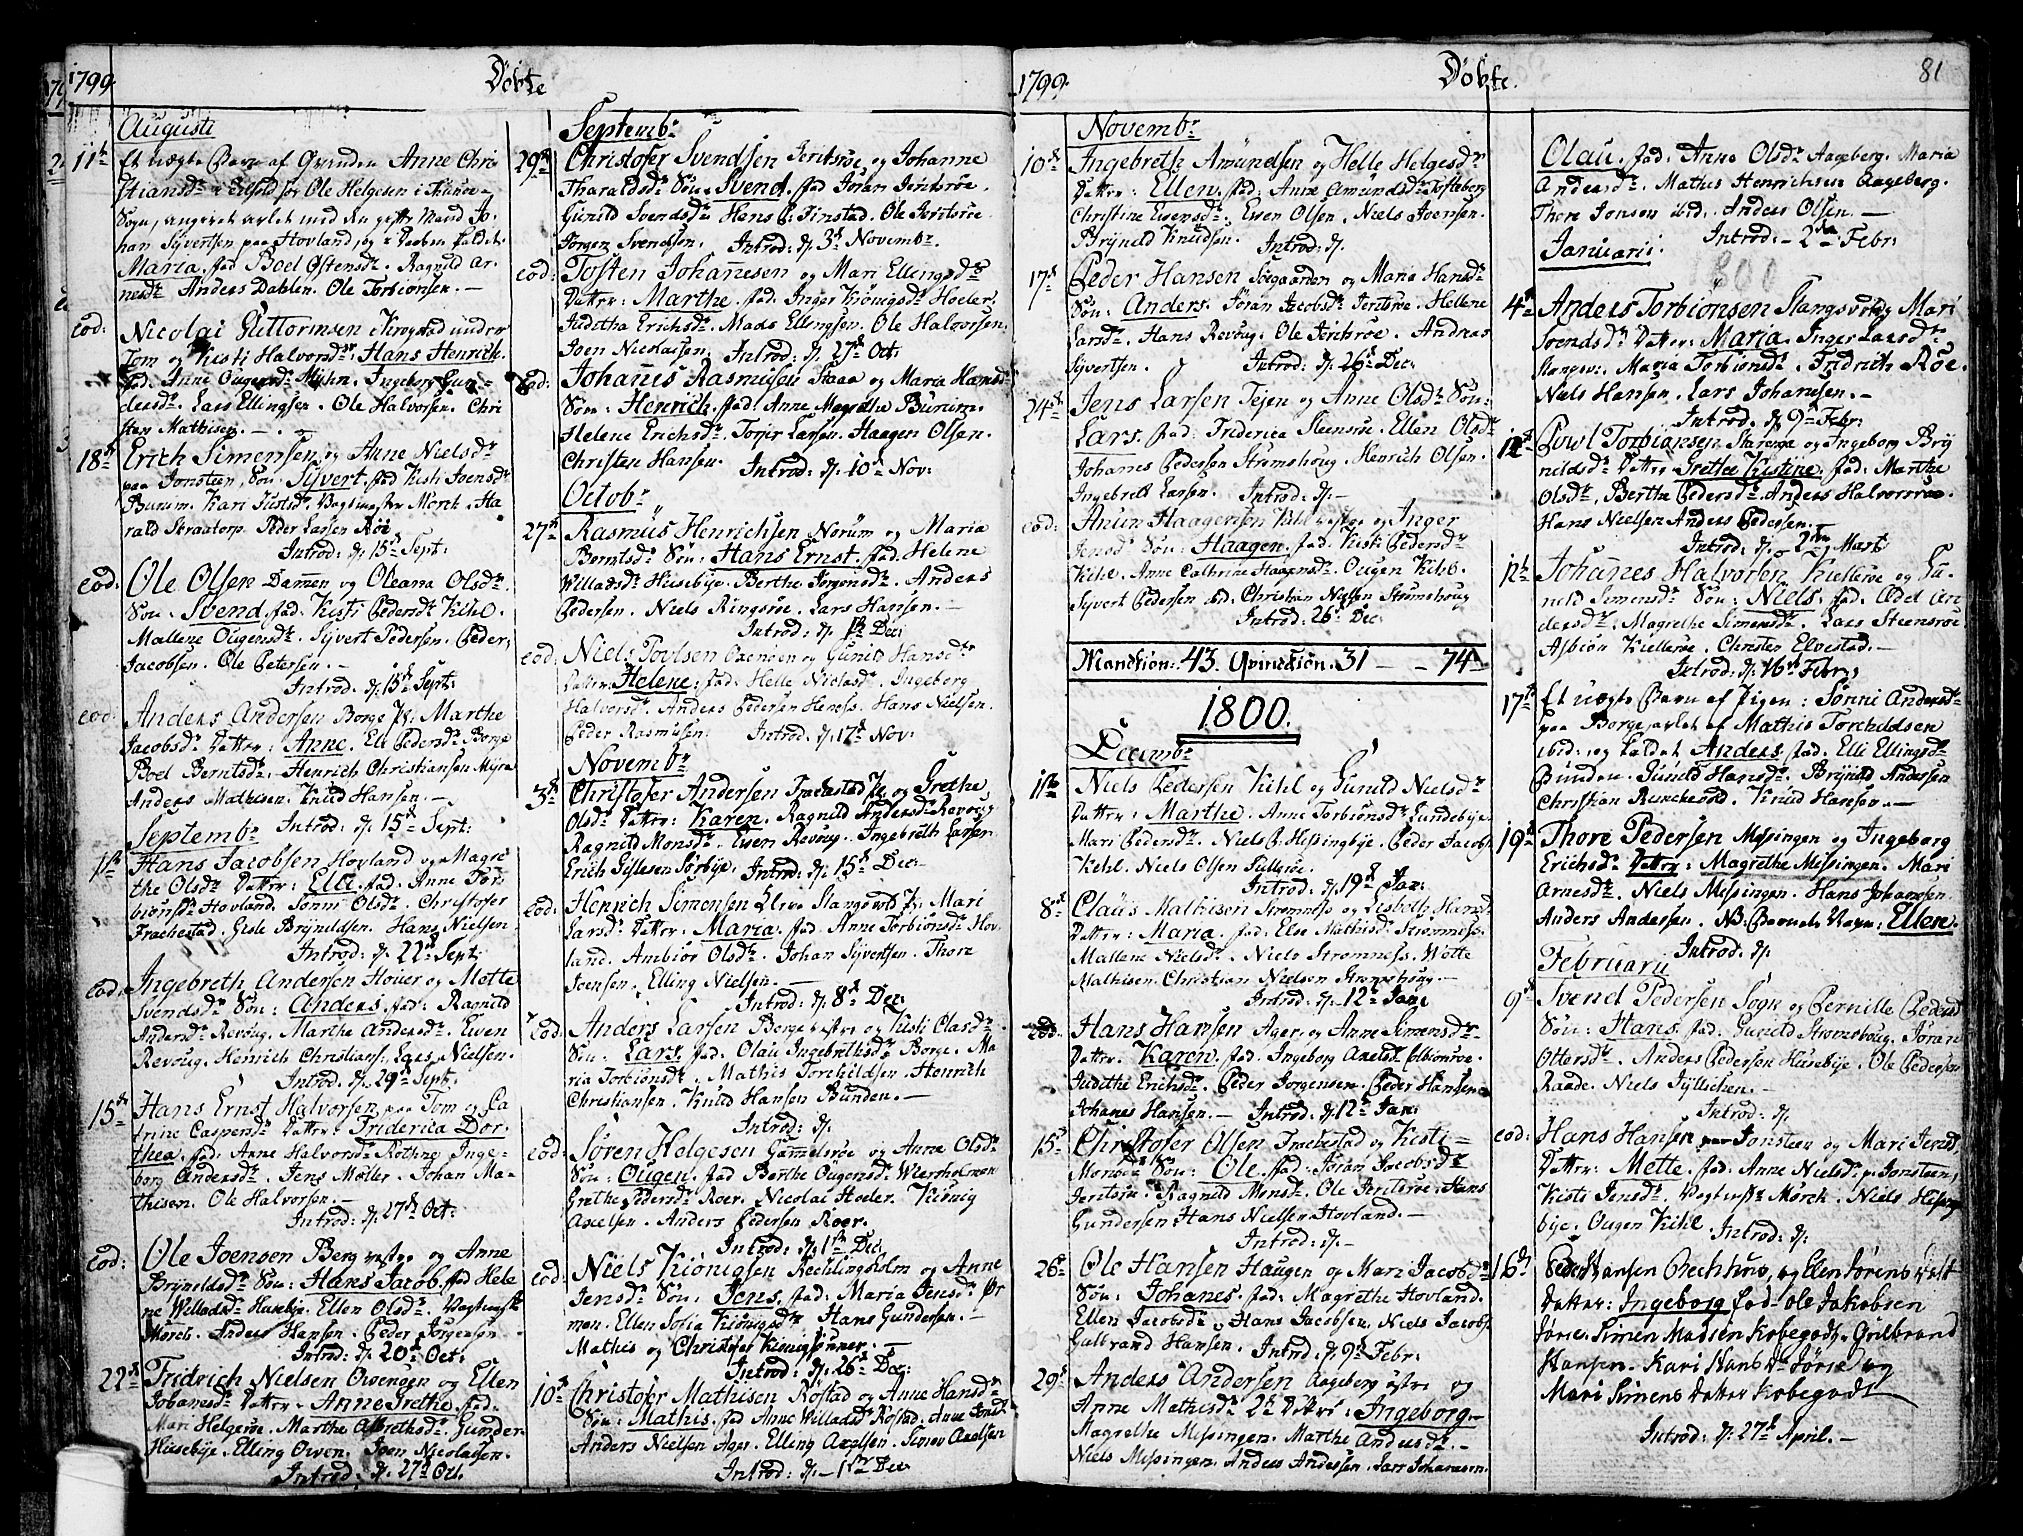 1799.
Döbte
Augusti
11te
Et uægte Barn af Qvinden Anne Chri
stiansdr
Ole Helgesen i
Sogn, angivet avlet med den gifte Mand Jo-
han Syvertsen paa Hovland, og i Daaben kaldet
Maria. fad. Boel Ostensdr. Ragnild Ar
nesdr. Anders Dahlen. Ole Torbiönsen. —
eod:
Nicolai Guttormsen Krogstad under
Tom og Kisti Halvorsdr. Hans Henrich.
fad. Anne Ougensdr. Ingeborg Gun-
dersdr. Lars Ellingsen. Ole Halvorsen. Chri
sten Mathisen. —
18de
Erich Simensen og Anne Nielsdr
paa Jonsteen, Sön. Syvert. fad Kisti Joensdr
Burum. Kari Justsdr. Vagtmester Mörck. Ha
rald Skraatorp. Peder Larsen Röe
Introd: d. 15de Sept:
eod:
Ole Olsen Damen og Oleana Olsdr
Sön. Svend. fad. Kisti Pedersdr Kihl.
Mallene Ougensdr. Syvert Pedersen. Peder
Jacobsen. Ole Petersen. —
Introd: d. 15de Sept:
eod:
Anders Andersen Borge Pl: Marthe
Jacobsdr Datter: Anne. Eli Pedersdr Borge
Boel Berntsdr. Henrich Christiansen Myra
Anders Mathisen. Knud Hansen. —
Introd: d. 15de Sept:
Septembr
1ste
Hans Jacobsen Hovland og Magre
the Olsdr Datter: Elli. fad. Anne Tor
biönsdr Hovland. Sönni Olsdr. Christofer
Frachestad. Gisle Bryneldsen. Hans Nielsen.
Introd: d. 22de Sept:
eod:
Ingebreth Andersen Houer og Mette
Svendsdr Sön: Anders. fad: Ragnild
Andersdr Revoug. Marthe Andersdr. Even
Revoug. Heinrich Christians. Lars Nielsen.
Introd: d. 29de Sept:
15de
Hans Ernst Halvorsen paa Tom og Ca
trine Caspersdr Datter: Friderica Dor
thea. fad: Anne Halvorsdr Rötne Inge-
borg Andersdr. Jens Möller. Johan Ma-
thisen. Ole Halvorsen. —
Introd: d. 27de Oct:
eod:
Ole Joensen Berg vestre og Anne
Bryneldsdr Sön: Hans Jacob. fad Hele
ne Willadsdr Husebye. Ellen Olsdr. Vagtmestr
Mörch. Anders Hansen. Peder Jörgensen
Introd: d. 20de Oct:
22de
Fridrich Nielsen Owengen og Ellen
Johanesdr Datter: Anne Grethe. fad:
Mari Helgeröe. Marthe Albrethsdr. Gunder
Husebye. Elling Owen. Joen Nicolaisen.
Introd: d. 27de Oct.
Septembr
29de
Christofer Svendsen Jeritsröe og Johanne
Tharaldsdr Sön. Svend. fad Jöran Jeritsröe.
Gunild Svendsdr Hans P: Finstad. Ole Jeritsröe
Jörgen Svendsen. Introd: d. 3de Novembr.
eod:
Tosten Johannesen og Mari Ellingsdr
Datter: Marthe. fad. Inger Königsdr Hoeler.
Juditha Erichsdr. Mads Ellingsen. Ole Halvorsen.
Joen Nicolaisen. Introd: d. 27de Oct:
eod:
Johannes Rasmusen Staae og Maria Hansdr
Sön: Henrich. fad: Anne Magrethe Burum.
Helene Erichsdr. Torjer Larsen. Haagen Olsen.
Christen Hansen. Introd: d. 10de Nov:
Octobr
27de
Rasmus Henrichsen Norum og Maria
Berntsdr Sön: Hans Ernst. fad. Helene
Willadsdr Husebÿe. Berthe Jörgensdr. Anders
Pedersen. Niels Ringröe. Lars Hansen. —
Introd: d. 1ste Dec:
eod:
Niels Povlsen Oxenöen og Gunild Hansdr
Datter Helene: fad: Helle Niclasdr. Ingeborg
Halvorsdr. Anders Pedersen Herness. Hans Nielsen.
Peder Rasmusen. Introd: d. 17de Nov:
Novembr
3de
Christofer Andersen Frachestad Pl. og Grethe
Olsdr Datter: Karen. Ragnild Andersdr Revoug
Ragnild Monsdr. Even Revoug. Ingebreth Larsen
Erich Gislesen Sörbye. Introd: d. 15de Dec:
eod:
Henrich Simensen Elvse Slangsvold Pl. Mari
Larsdr Datter: Maria. fad: Anne Torbiönsdr Hov
land. Ambiör Olsdr. Johan Syvertsen. Thore
Joensen. Elling Nielsen. —
Introd: d. 8de Dec:
eod:
Anders Larsen Borge vestre og Kisti Clasdr.
Sön: Lars. fad: Olau Ingebrethsdr Borge. Ma
ria Torbiönsdr. Mathis Torchildsen. Henrich
Christiansen. Knud Hansen Bunden. —
Introd: d.
eod:
Sören Helgesen Gammelröe og Anne Olsdr
Sön: Ougen. fad Berthe Ougensdr Wiersholmen
Grethe Pedersdr Roer. Nicolai Hoeler. König
Axelsen. Anders Pedersen Roer.
Introd: d. 1ste Dec:
eod:
Niels Königsen Rechlingsholm og Anne
Jensdr Sön: Jens. fad: Maria Jensdr Ör
men. Ellen Sofia Königsdr Hans Gundersen. —
Mathis og Christofer Königsönner. —
Introd: d. 26de Dec:
10de
Christofer Mathisen Röstad og Anne Hansdr
Sön: Mathis. fad Anne Willadsdr Röstad. Anne Jonsdr
Anders Nielsen Ager. Elling Axelsen. Simon Axelsen
Introd: d. — 1ste Dec
1799.
Döbte.
81
Novembr
10de
Ingebreth Amundsen og Helle Helgesdr
Datter: Ellen. fad: Anne Amundsdr Tofteberg
Christine Evensdr. Even Olsen. Niels Joensen.
Bryneld Knudsen. Introd: d.
17de
Peder Hansen Söegaarden og Maria Hansdr
Sön: Anders. Jöran Jacobsdr Jeritsröe. Hellene
Larsdr. Hans Revoug. Ole Jeritsröe. Andreas
Syvertsen. Introd: d. 26de Dec:
24de
Jens Larsen Tejen og Anne Olsdr Sön:
Lars. fad: Friderica Steensröe. Ellen Olsdr
Johanes Pedersen Strömshoug. Henrich Olsen.
Ingebreth Larsen. Introd: d. —
eod:
Anun Haagensen Kihl vestre og Inger
Jensdr Sön: Haagen. fad: Kisti Pedersdr
Kihl. Anne Cathrine Haagensdr. Ougen Kihl.
Syvert Pedersen ibd. Christian Nielsen Strömshoug
Introd: 26de Dec:
Mandkiön: 43. Qvindkiön. 31 — — 74
1800.
Decembr
1ste
Niels Pedersen Kihl og Gunild Nielsdr
Datter: Marthe. Anne Torbiönsdr Lundebye.
Mari Pedersdr. Niels P: Hessingbye. Peder Jacobs.
Kihl. Niels Olsen Gulleröe.
Introd: d. 19de Jan:
8de
Claus Mathisen Strömness og Lisbeth Hansdr
Datter: Maria. fad: Else Mathisdr Strömness.
Mallene Nielsdr. Niels Strömness. Wette
Mathisen. Christian Nielsen Strömshoug. —
Introd: d. 12te Jan:
eod:
Hans Hansen Ager og Anne Simensdr
Datter. Karen. fad. Ingeborg Axelsdr Colbiönröe.
Judithe Erichsdr. Peder Jörgensen. Peder Hansen
Johanes Hansen. — Introd: d. 12te Jan:
15de
Christofer Olsen Frachestad og Kisti
Monsdr Sön: Ole. fad: Jöran Jacobsdr
Jeritsröe. Ragnild Monsdr. Ole Jeritsröe. Hans
Gundersen. Hans Nielsen Hovland. —
Introd: d. —
26de
Ole Hansen Haugen og Mari Jacobsdr
Sön: Johanes. fad: Magrethe Hovland.
Ellen Jacobsdr. Hans Jacobsen. Niels Jacobs.
Gulbrand Hansen. Introd: d. 9de Febr:
29de
Anders Andersen Aageberg östre og
Anne Mathisdr 2de Datter: Ingeborg.
Magrethe Messingen. Marthe Andersdr. —
Niels Messingen. Anders Andersen. Lars Johanesen.
Olau. fad: Anne Olsdr Aageberg. Maria
Andersdr. Mathis Henrichsen Aageberg.
Thore Jonsen ibid. Anders Olsen. —
Introd: — 2den Febr:
Januarii
800
4de
Anders Torbiönsen Slangsvold og Mari
Svendsdr Datter: Maria. Inger Larsdr
Slangsv: Maria Torbiönsdr. Fridrich Röe.
Niels Hansen. Lars Johanesen. —
Introd: d. 9de Febr:
12te
Povl Torbiönsen Starenge og Ingeborg Bry
nildsdr Datter Grethe Kistine. fad: Marthe
Olsdr. Berthe Pedersdr Anders Halvorsröe.
Hans Nielsen Anders Pedersen. —
Introd: d. 2den Mart
12te
Johanes Halvorsen Kielleröe og Gu-
nild Simensdr Sön: Niels. fad: Edel An
dersdr. Magrethe Simensdr. Lars Steensröe
Asbiön Kielleröe. Christen Elvestad. —
Introd: d. 16de Febr:
17de
Et uægte Barn af Pigen: Sönni Andersdr
paa Borge, avlet af Mathis Torchildsen
ibid: og kaldet Anders. fad. Elli Ellingsdr
Bunden. Gunild Hansdr. Bryneld Andersen
Christian Runckevold. Knud Hansen. —
19de
Thore Pedersen Messingen og Ingeborg
Erichsdr Datter: Magrethe Messingen. Mari
Arnesdr. Niels Messingen. Hans Johansen.
Anders Andersen. NB. Barnets Navn: Ellen.
Introd: d.
Februarii
9de
Svend Pedersen Sogn og Pernille Pedersd
Sön: Hans. fad: Gunild Strömshoug. Jöran
Ottersdr. Anders Pedersen Husebye. Ole Pedersen
Raade. Niels Jyllichen. —
Introd: d.
eod:
Hans Hansen paa Jonsteen og Mari Jensdr
Datter: Mette. fad: Anne Nielsdr p: Jonsteen,
Kisti Jensdr. Vagtmstr Mörck. Niels Hessing
bye. Ougen Kihl. Introd: d.
16de
Peder Hansen Brechhus, og Ellen Sörens Datt
Datter: Ingeborg fad — Ole Jakobsen
Törse. Simen Madsen Kobegodt. Gulbrand
Hansen. Kari Hans Dr Törse og
Mari Simens Datter Kobegodt
Introd: d. 27de April. —